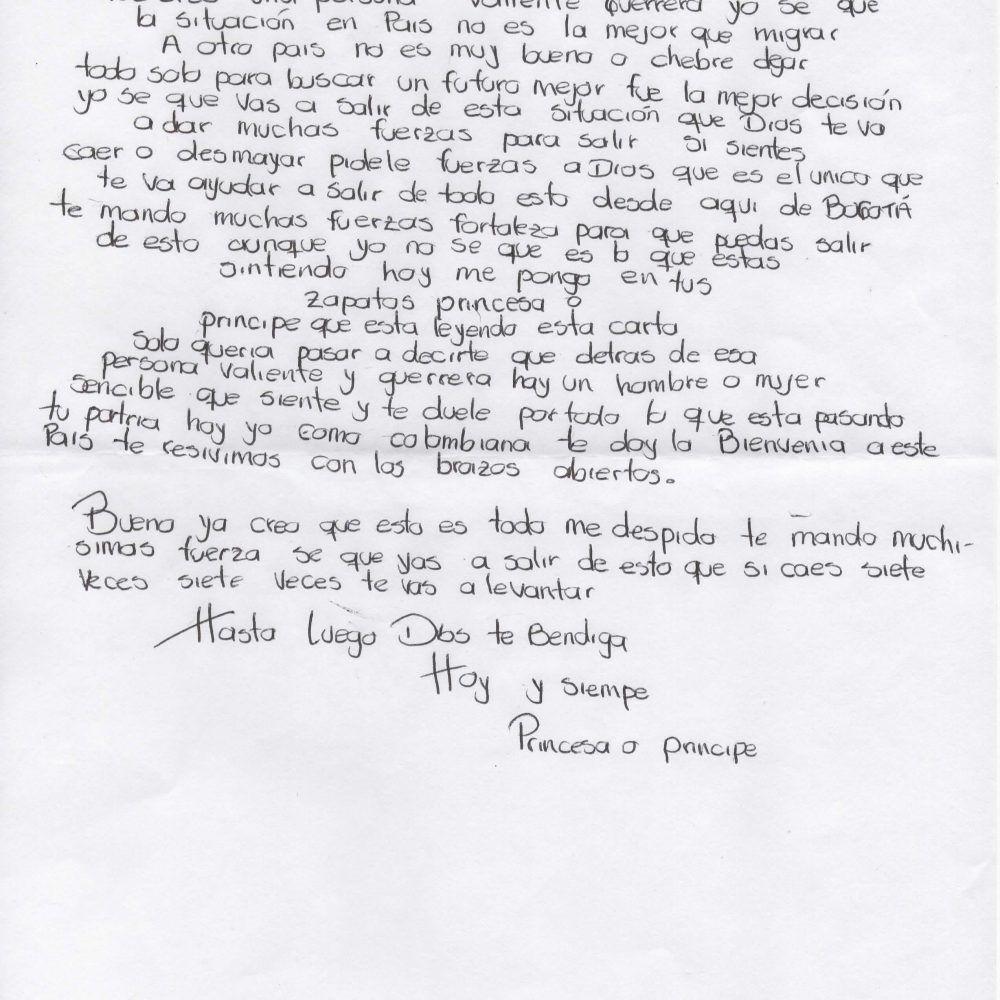 una persona valiente guerrera yo se que
la situación en Pais no es la mejor que migrar
A otro pais no es muy bueno o chebre dejar
todo solo para buscar un futuro mejor fue la mejor decisión
yo se que vas a salir de esta situación que Dios te va
a dar muchas fuerzas para salir si sientes
caer o desmayar pidele fuerzas a Dios que es el unico que
te va ayudar a salir de todo esto desde aqui de BOGOTÁ
te mando muchas fuerzas fortaleza para que puedas salir
de esto aunque yo no se que es lo que estas
sintiendo hoy me pongo en tus
zapatos princesa o
principe que esta leyendo esta carta
solo queria pasar a decirte que detras de esa
persona valiente y guerrera hay un hombre o mujer
sencible que siente y te duele por todo lo que esta pasando
tu partria hoy yo como colombiana te doy la Bienvenia a este
Pais te resivimos con los brazos abiertos.
Bueno ya creo que esto es todo me despido te mando muchi-
simas fuerza se que vas a salir de esto que si caes siete
veces siete veces te vas a levantar
Hasta Luego Dios te Bendiga
Hoy y siempe
Princesa o principe